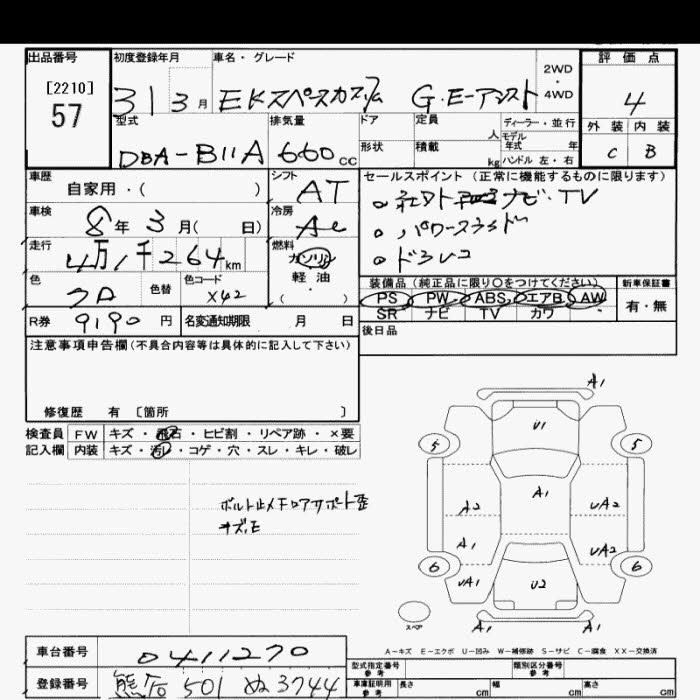 出品番号
[2210]
57
初度登録年月
31 3 月
車名・グレード
EKスペースカスタム G・E-アシスト
2WD
・
4WD
評価点
4
外装 内装
C B
型式
DBA-B11A
排気量
660 cc
ドア
形状
定員
人
積載
kg
ディーラー・並行
モデル
年式 年
ハンドル 左・右
車歴
自家用・( )
シフト
AT
車検
8年 3月( 日)
冷房
走行
4万1千264km
燃料
ガソリン
軽油
・
( )
色
色替
色コード
X42
R券 9190 円
名変通知期限 月 日
セールスポイント(正常に機能するものに限ります)
ナビ・TV
パワースライド
ドラレコ
装備品(純正品に限り〇をつけてください)
PS PW ABS エアB AW
SR ナビ TV カワ
新車保証書
有・無
後日品
注意事項申告欄(不具合内容等は具体的に記入して下さい)
修復歴 有 〔箇所 〕
検査員
記入欄
FW キズ・飛石・ヒビ割・リペア跡・×要
内装 キズ・汚レ・コゲ・穴・スレ・キレ・破レ
ボルト止メ
A1
U1
5 5
A1
A2 UA2
A1 UA2
6 6
UA1
U2
A1 A1
スペア
A-キズ E-エクボ U-凹み W-補修跡 S-サビ C-腐食 XX-交換済
車台番号 0411270
登録番号 501 ぬ 3744
型式指定番号
参考
類別区分番号
参考
車庫証明用
参考
長さ cm 幅 cm 高さ cm